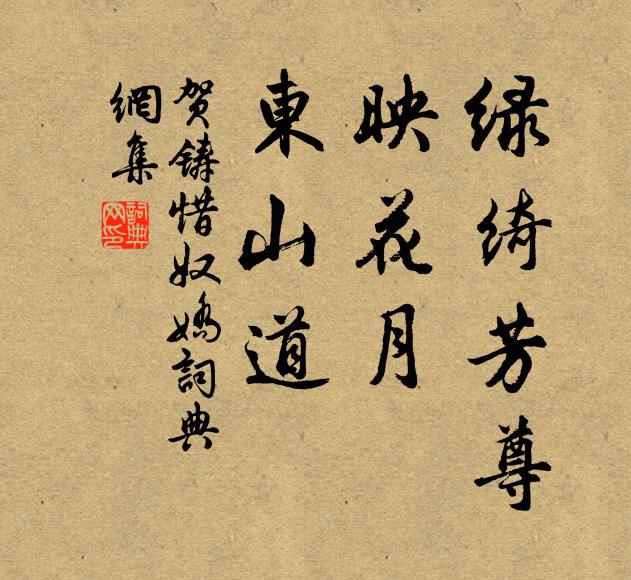 绿绮芳尊
映花月
東山道
贺铸惜奴娇詞典
網集
詞典
网印